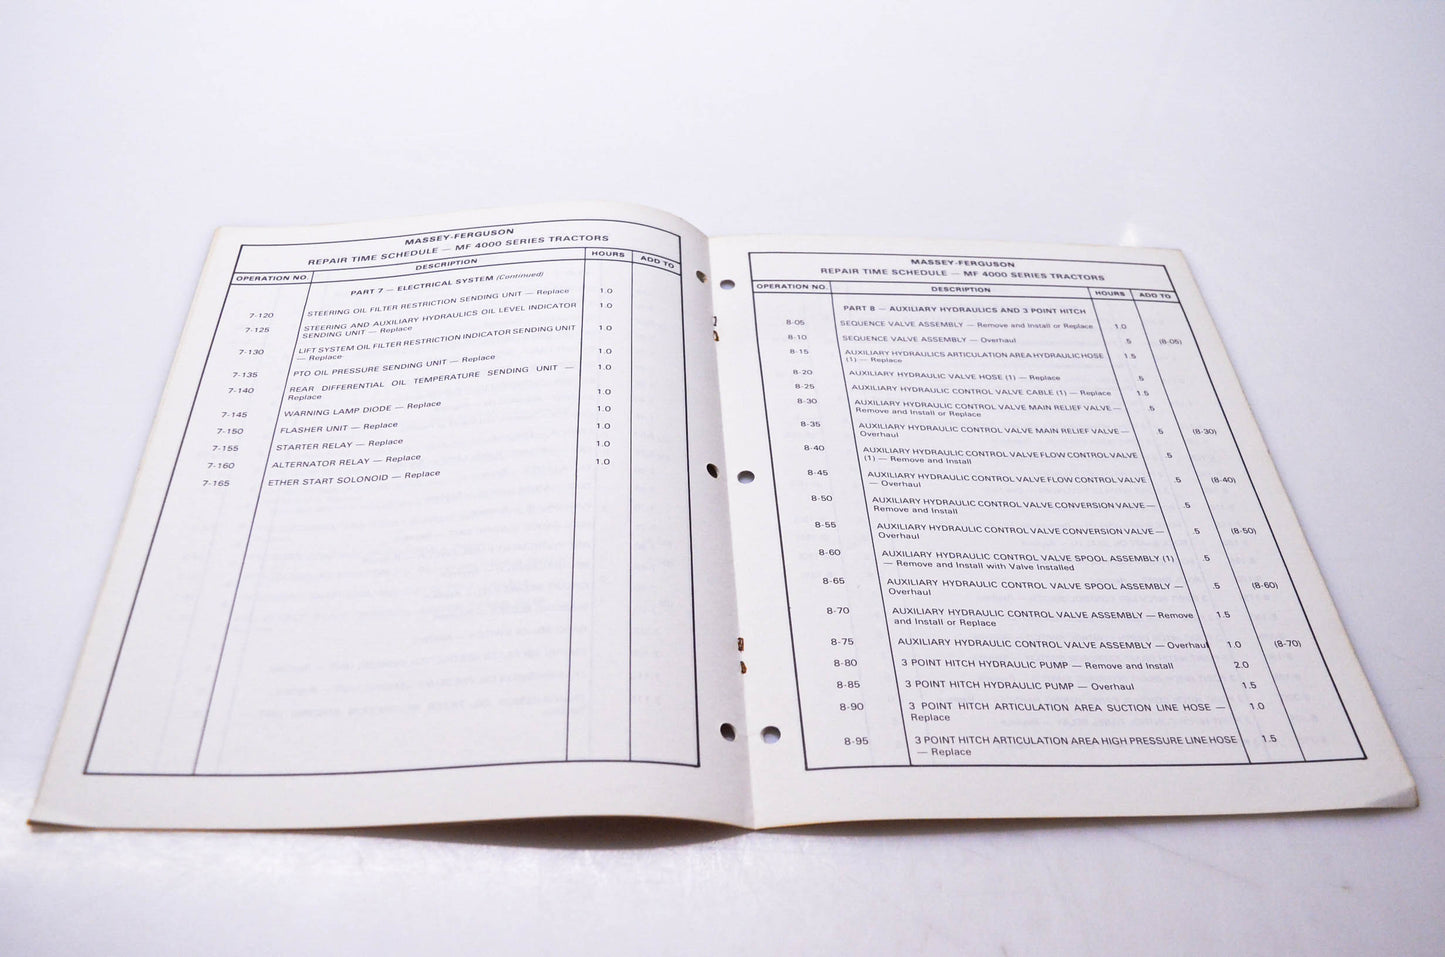 MASSEY-FERGUSON
REPAIR TIME SCHEDULE — MF 4000 SERIES TRACTORS
OPERATION NO. DESCRIPTION HOURS ADD TO
PART 7 — ELECTRICAL SYSTEM (Continued)
7-120 STEERING OIL FILTER RESTRICTION SENDING UNIT — Replace 1.0
7-125 STEERING AND AUXILIARY HYDRAULICS OIL LEVEL INDICATOR 1.0
SENDING UNIT — Replace
7-130 LIFT SYSTEM OIL FILTER RESTRICTION INDICATOR SENDING UNIT 1.0
— Replace
7-135 PTO OIL PRESSURE SENDING UNIT — Replace 1.0
7-140 REAR DIFFERENTIAL OIL TEMPERATURE SENDING UNIT — 1.0
Replace
7-145 WARNING LAMP DIODE — Replace 1.0
7-150 FLASHER UNIT — Replace 1.0
7-155 STARTER RELAY — Replace 1.0
7-160 ALTERNATOR RELAY — Replace 1.0
7-165 ETHER START SOLONOID — Replace 1.0
MASSEY-FERGUSON
REPAIR TIME SCHEDULE — MF 4000 SERIES TRACTORS
OPERATION NO. DESCRIPTION HOURS ADD TO
PART 8 — AUXILIARY HYDRAULICS AND 3 POINT HITCH
8-05 SEQUENCE VALVE ASSEMBLY — Remove and Install or Replace 1.0
8-10 SEQUENCE VALVE ASSEMBLY — Overhaul .5 (8-05)
8-15 AUXILIARY HYDRAULICS ARTICULATION AREA HYDRAULIC HOSE 1.5
(1) — Replace
8-20 AUXILIARY HYDRAULIC VALVE HOSE (1) — Replace .5
8-25 AUXILIARY HYDRAULIC CONTROL VALVE CABLE (1) — Replace 1.5
8-30 AUXILIARY HYDRAULIC CONTROL VALVE MAIN RELIEF VALVE — .5
Remove and Install or Replace
8-35 AUXILIARY HYDRAULIC CONTROL VALVE MAIN RELIEF VALVE — .5 (8-30)
Overhaul
8-40 AUXILIARY HYDRAULIC CONTROL VALVE FLOW CONTROL VALVE .5
(1) — Remove and Install
8-45 AUXILIARY HYDRAULIC CONTROL VALVE FLOW CONTROL VALVE .5 (8-40)
— Overhaul
8-50 AUXILIARY HYDRAULIC CONTROL VALVE CONVERSION VALVE — .5
Remove and Install
8-55 AUXILIARY HYDRAULIC CONTROL VALVE CONVERSION VALVE — .5 (8-50)
Overhaul
8-60 AUXILIARY HYDRAULIC CONTROL VALVE SPOOL ASSEMBLY (1) .5
— Remove and Install with Valve Installed
8-65 AUXILIARY HYDRAULIC CONTROL VALVE SPOOL ASSEMBLY — .5 (8-60)
Overhaul
8-70 AUXILIARY HYDRAULIC CONTROL VALVE ASSEMBLY — Remove 1.5
and Install or Replace
8-75 AUXILIARY HYDRAULIC CONTROL VALVE ASSEMBLY — Overhaul 1.0 (8-70)
8-80 3 POINT HITCH HYDRAULIC PUMP — Remove and Install 2.0
8-85 3 POINT HITCH HYDRAULIC PUMP — Overhaul 1.5
8-90 3 POINT HITCH ARTICULATION AREA SUCTION LINE HOSE — 1.0
Replace
8-95 3 POINT HITCH ARTICULATION AREA HIGH PRESSURE LINE HOSE 1.5
— Replace